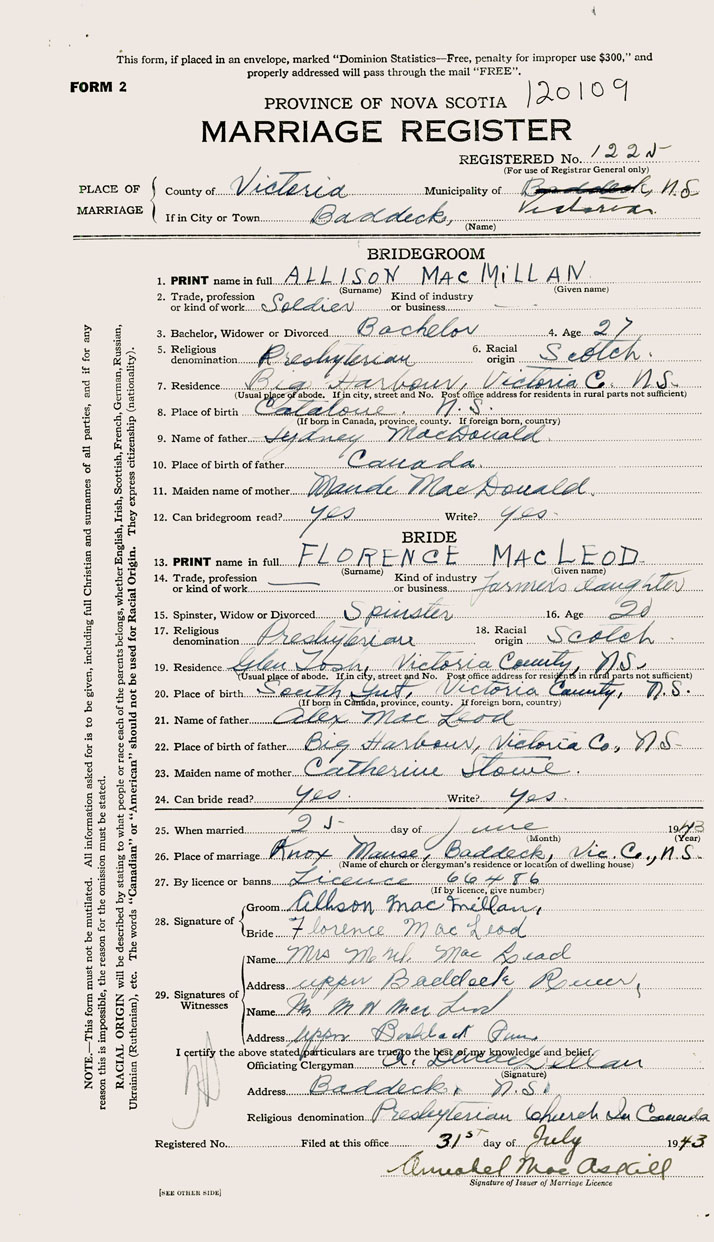 This form, if placed in an envelope, marked "Dominion Statistics—Free, penalty for improper use $300," and
properly addressed will pass through the mail "FREE".
FORM 2
PROVINCE OF NOVA SCOTIA 120109
MARRIAGE REGISTER
REGISTERED No. 1225
(For use of Registrar General only)
PLACE OF MARRIAGE
County of Victoria Municipality of Baddeck, N.S
Victoria
If in City or Town Baddeck,
(Name)
BRIDEGROOM
1. PRINT name in full ALLISON MACMILLAN
(Surname) (Given name)
2. Trade, profession or kind of work Soldier Kind of industry or business
3. Bachelor, Widower or Divorced Bachelor 4. Age 27
5. Religious denomination Presbyterian 6. Racial origin Scotch.
7. Residence Big Harbour, Victoria C. N.S.
(Usual place of abode. If in city, street and No. Post office address for residents in rural parts not sufficient)
8. Place of birth Catalone. N.S.
(If born in Canada, province, county. If foreign born, country)
9. Name of father Sydney MacDonald.
10. Place of birth of father Canada.
11. Maiden name of mother Maude MacDonald.
12. Can bridegroom read? yes Write? yes.
BRIDE
13. PRINT name in full FLORENCE MACLEOD
(Surname) (Given name)
14. Trade, profession or kind of work Kind of industry or business farmer's daughter
15. Spinster, Widow or Divorced Spinster 16. Age 20
17. Religious denomination Presbyterian 18. Racial origin Scotch.
19. Residence Glen Tosh, Victoria County, N.S.
(Usual place of abode. If in city, street and No. Post office address for residents in rural parts not sufficient)
20. Place of birth South Gut, Victoria County, N.S.
(If born in Canada, province, county. If foreign born, country)
21. Name of father Alex Mac Leod
22. Place of birth of father Big Harbour, Victoria Co., N.S.
23. Maiden name of mother Catherine Stowe.
24. Can bride read? yes. Write? yes.
25. When married 25 day of June 1943
(Month) (Year)
26. Place of marriage Knox Manse, Baddeck, Vic. Co., N.S.
(Name of church or clergyman's residence or location of dwelling house)
27. By licence or banns Licence 66486
(If by licence, give number)
28. Signature of
Groom Allison MacMillan,
Bride Florence MacLeod
29. Signatures of Witnesses
Name Mrs Mac Leod
Address upper Baddeck River,
Name Mr M N MacLeod
Address Upper Baddeck
I certify the above stated particulars are true to the best of my knowledge and belief.
Officiating Clergyman A.
(Signature)
Address Baddeck, N.S.
Religious denomination Presbyterian Church In Canada
Registered No. Filed at this office 31st day of July 1943
Annabel MacAskill
Signature of Issuer of Marriage Licence
[SEE OTHER SIDE]
NOTE.—This form must not be mutilated. All information asked for is to be given, including full Christian and surnames of all parties, and if for any
reason this is impossible, the reason for the omission must be stated.
RACIAL ORIGIN will be described by stating to what people or race each of the parents belongs, whether English, Irish, Scottish, French, German, Russian,
Ukrainian (Ruthenian), etc. The words "Canadian" or "American" should not be used for Racial Origin. They express citizenship (nationality).